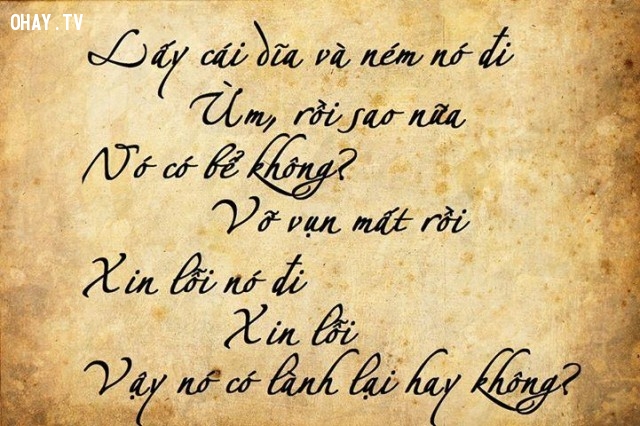 OHAY.TV
Lấy cái dĩa và ném nó đi
Ùm, rồi sao nữa
Nó có bể không?
Vỡ vụn mất rồi
Xin lỗi nó đi
Xin lỗi
Vậy nó có lành lại hay không?